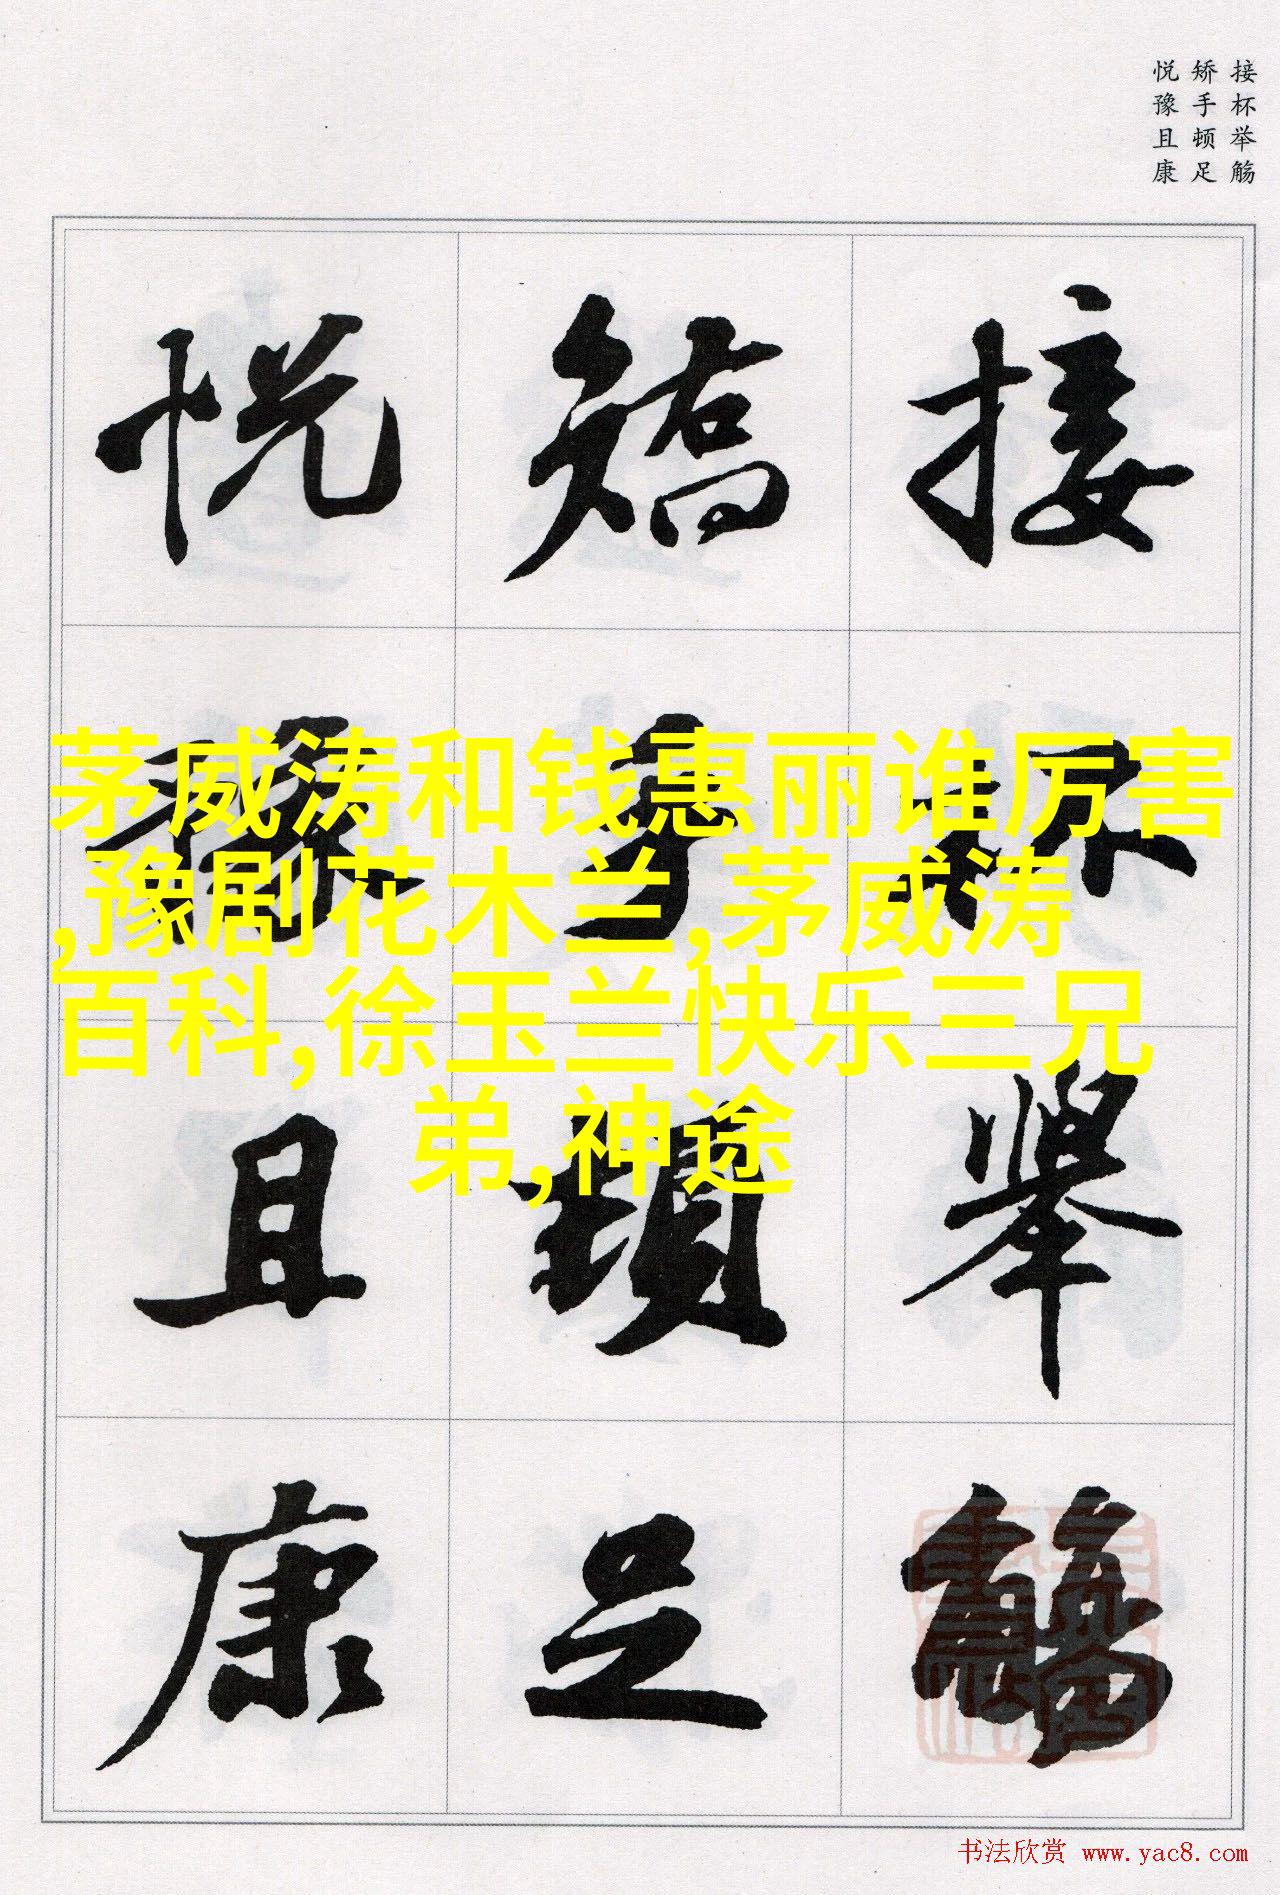 接杯举觞
矫手顿足
悦豫且康
接杯舉觴
矯手頓足
悦豫且康
茅威涛和钱惠丽谁厉害
,豫剧花木兰,茅威涛
百科,徐玉兰快乐三兄
弟,神途
书法欣赏 www.yac8.com